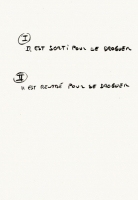 I
IL EST SORTI POUR SE DROGUER
II
IL EST RENTRÉ POUR SE DROGUER